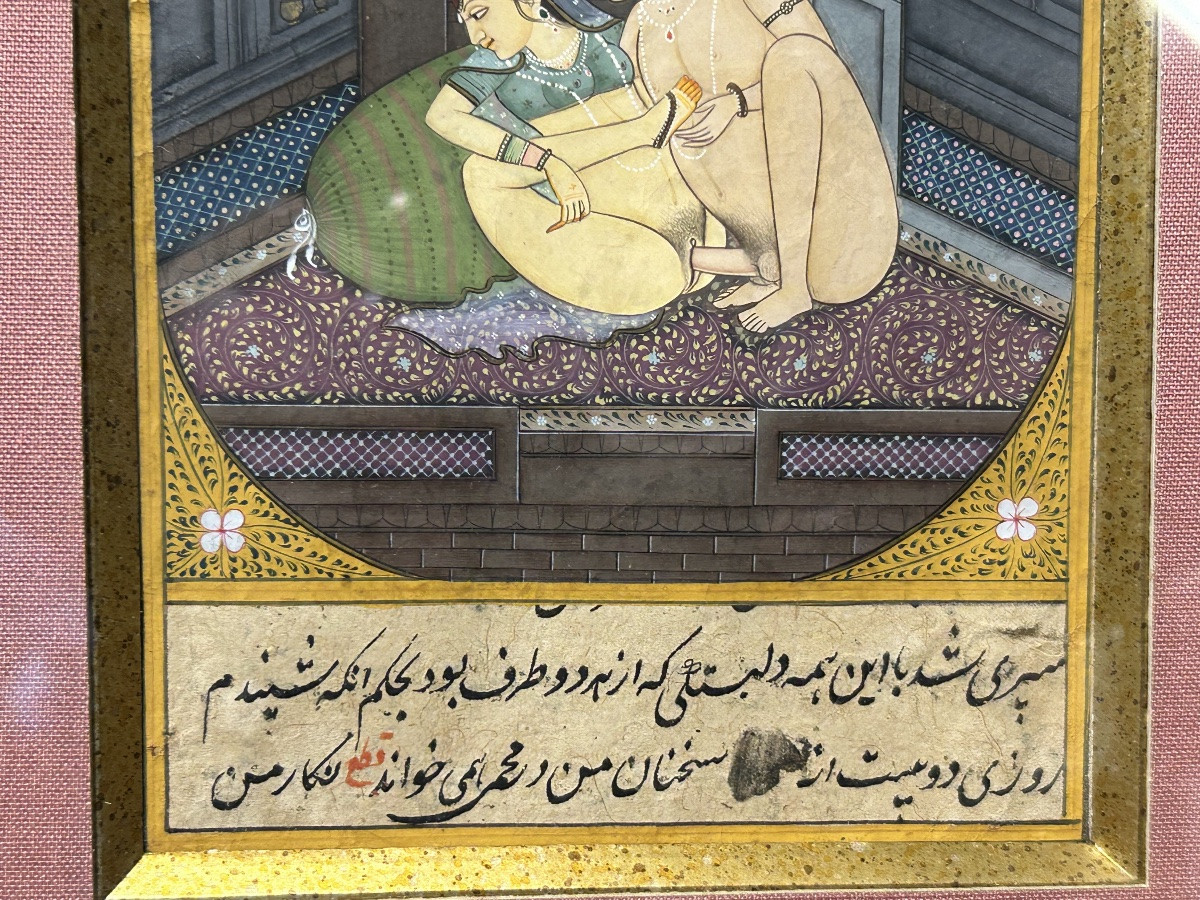 سپری شد با این همه دلبستگی که از هر دو طرف بود بحکم انکه شنیدم
روزی دو بیت از سخنان من در همی خواند قطعه نگار من